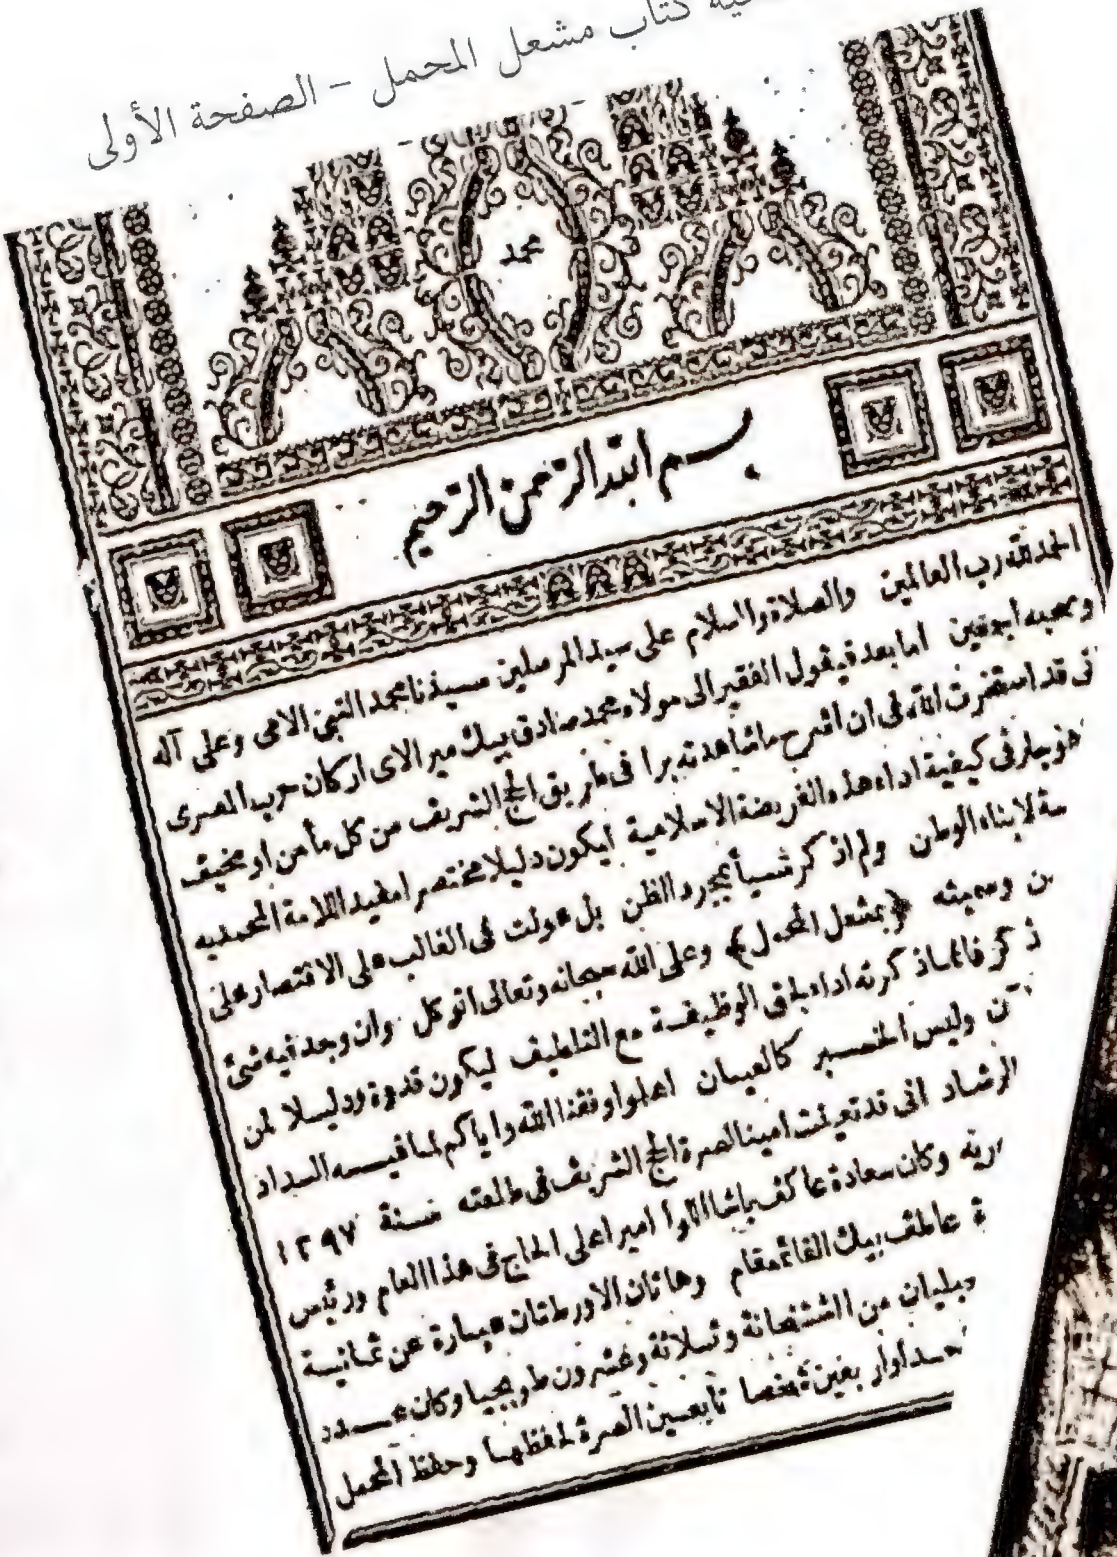 كتاب مشعل المحمل - الصفحة الأولى
محمد
بسم الله الرحمن الرحيم
الحمد لله رب العالمين والصلاة والسلام على سيد المرسلين سيدنا محمد النبي الامى وعلى آله
وصحبه اجمعين اما بعد فيقول الفقير الى مولاه محمد صادق بيك مير الاى اركان حرب المصرى
انى قد استخرت الله فى ان اشرح ما شاهدته برا فى طريق الحج الشريف من كل مأمن او مخيف
فى كيفية اداء هذه الفريضة الاسلامية ليكون دليلا مختصرا مفيدا للامة المحمديه
لابناء الوطن ولم اذكر شيأ بمجرد الظن بل عولت فى الغالب على الاقتصار على
وسميته ﴿بمشعل المحمل﴾ وعلى الله سبحانه وتعالى اتوكل وان وجد فيه شئ
ذكر فانما ذكرته اداء لحق الوظيفة مع التلطيف ليكون قدوة ودليلا لمن
وليس الخبر كالعيان اعلموا وفقنا الله واياكم لما فيه السداد
الرشاد انى قد تعينت امينا لصرة الحج الشريف فى طلعته سنة ١٢٩٧
وكان سعادة عاكف باشا اللوا اميرا على الحاج فى هذا العام ورئيس
عاطف بيك القائمقام وهاتان الاورطتان عبارة عن ثمانية
من الششخانة وثلاثة وعشرون طوبجيا وكان عدد
واربعين شخصا تابعين الصرة لحفظها وحفظ المحمل